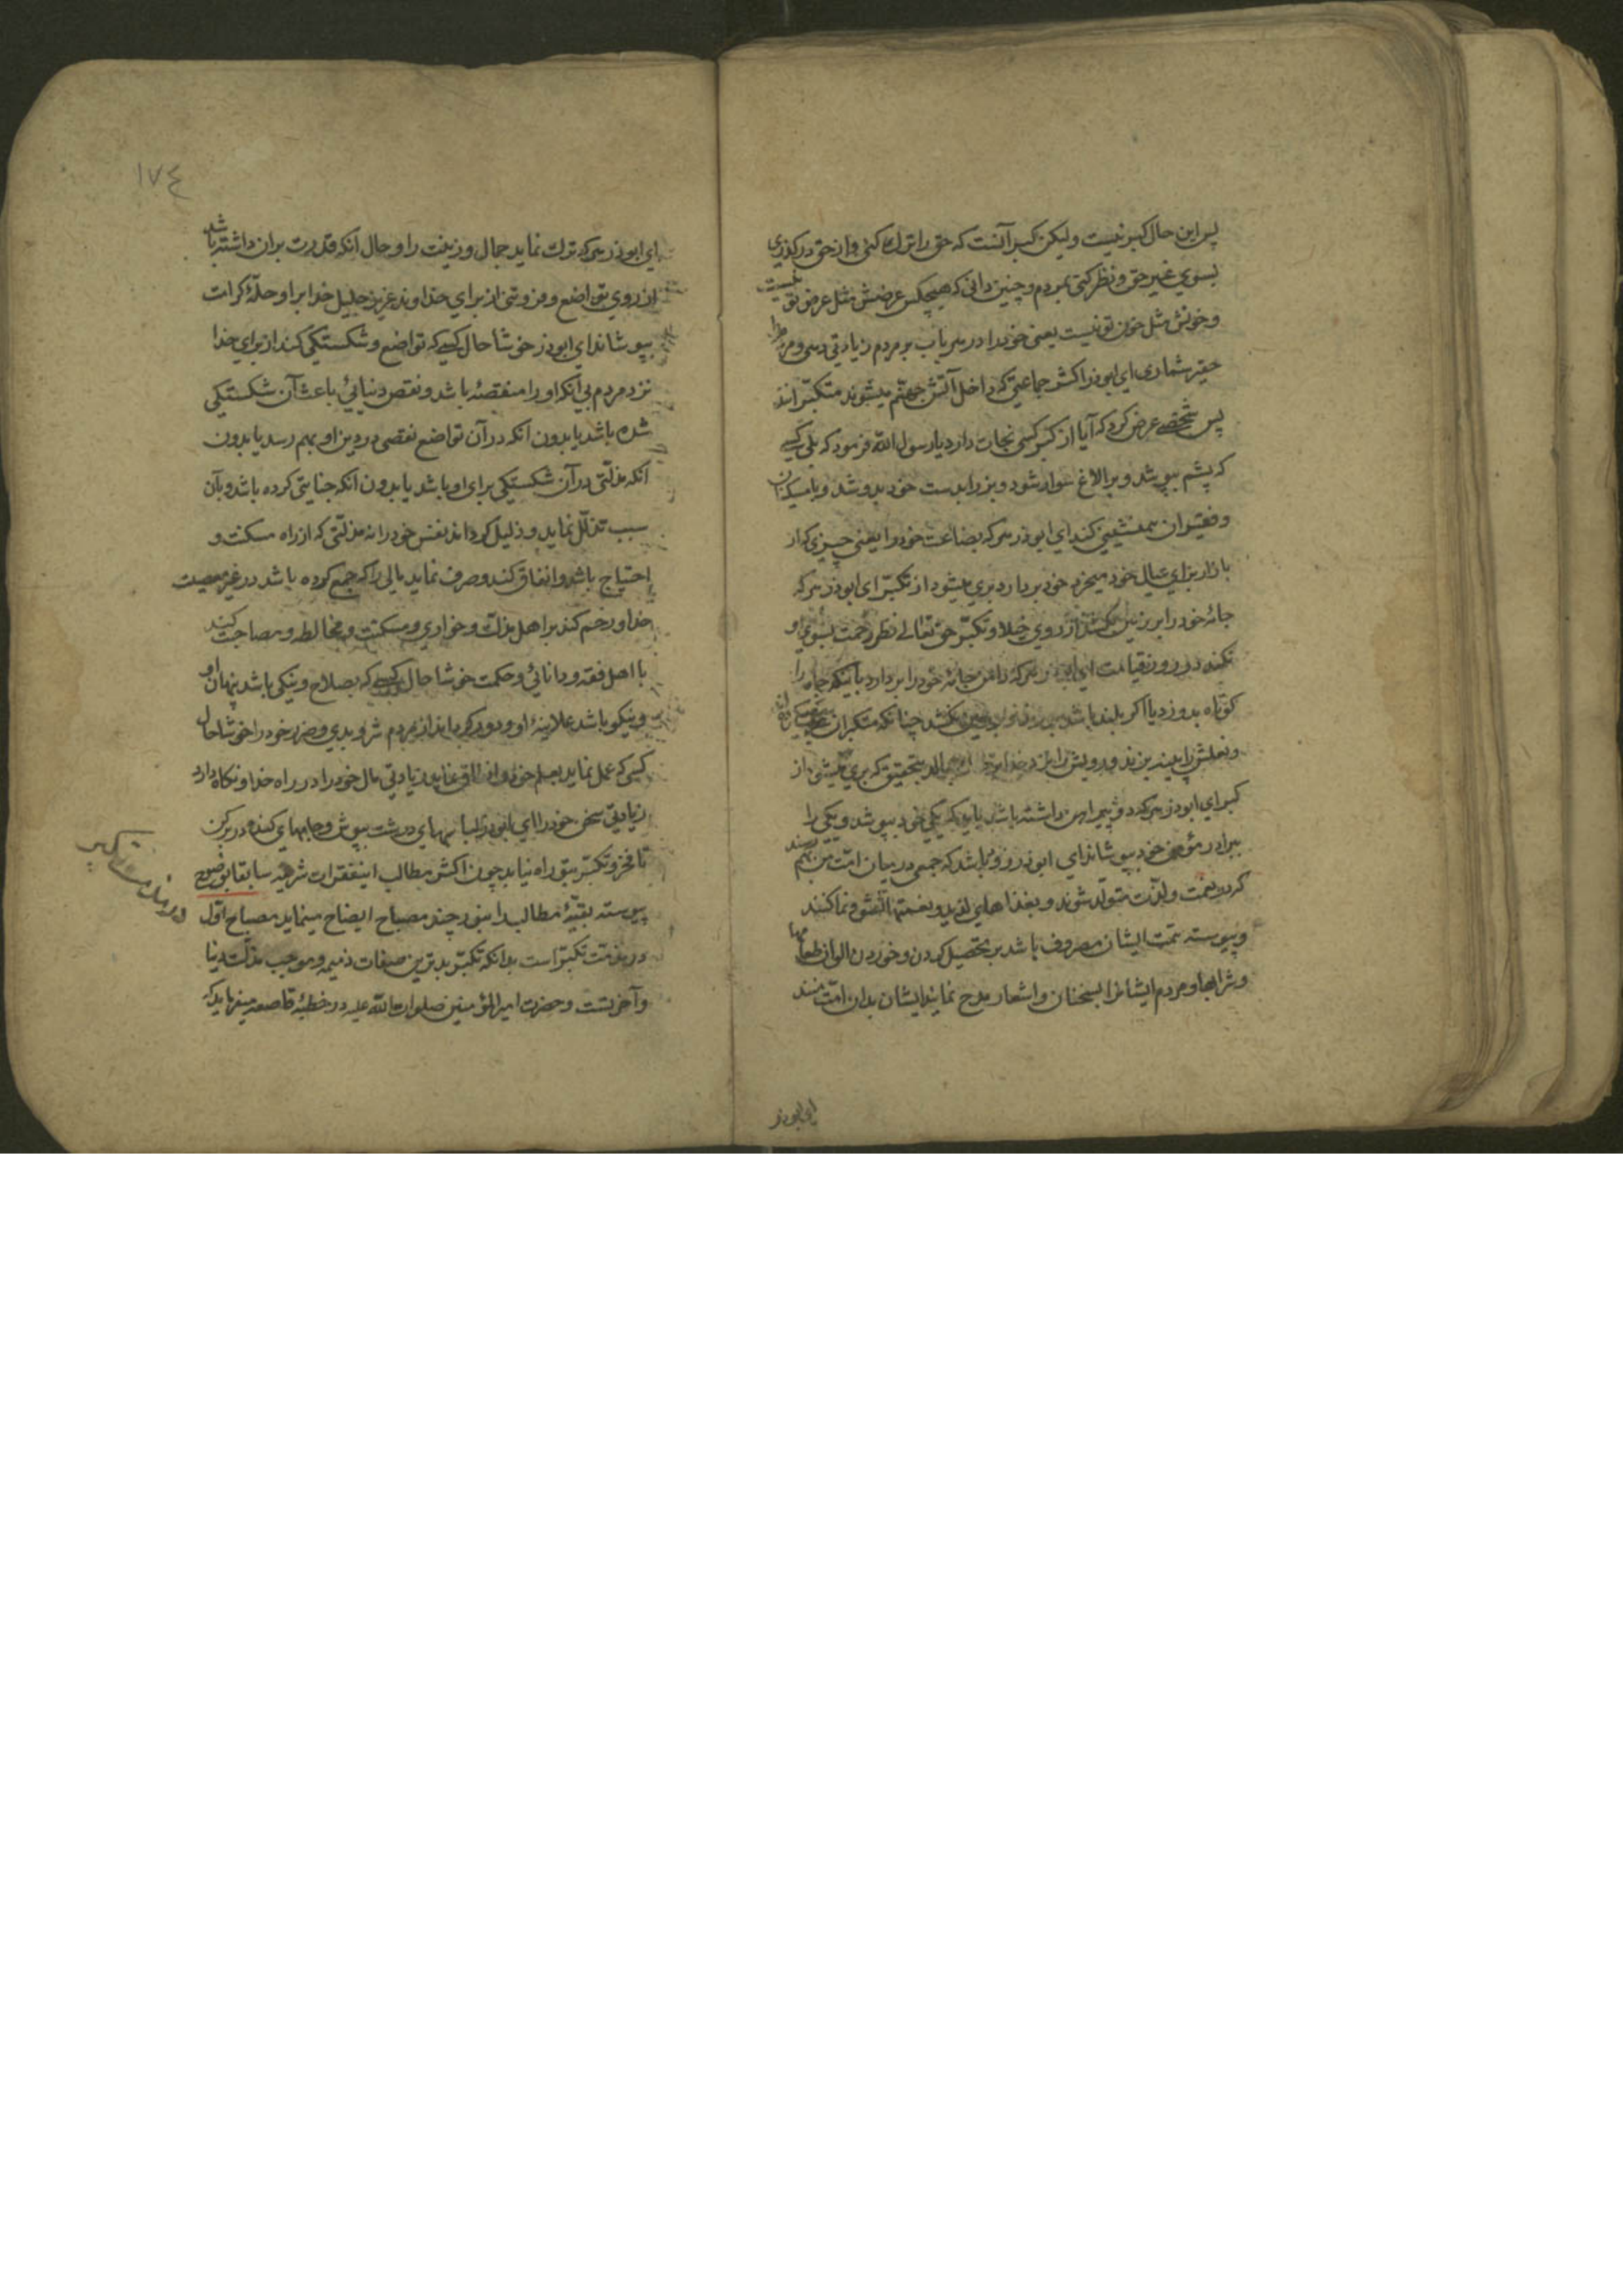 پس این حال کبر نیست ولیکن کبر آنست که حق را ترك کنی و از حق درگذری
بسوی غیر حق و نظر کنی بمردم و چنین دانی که هیچکس عرضش مثل عرض تو نیست
و خونش مثل خون تو نیست یعنی خود را در هر باب بر مردم زیادتی دهی و مردم را
حقیر شماری ای ابوذر اکثر جماعتی که داخل آتش جهنّم میشوند متکبّرانند
پس شخصے عرض کرد که آیا از کبر کسی نجات دارد یا رسول الله فرمود که بلی کسے
که پشم بپوشد و بر الاغ سوار شود و بز را بدست خود بدوشد و با مسکینان
و فقیران همنشینی کند ای ابوذر هرکه بضاعت خود را یعنی چیزی که از
بازار برای عیال خود میخرد خود بردارد بری میشود از تکبّر ای ابوذر هرکه
جامهٔ خود را بر زمین کشد از روی خیلا و تکبّر حق تعالی نظر رحمت بسوی او
نکند در روز قیامت ای ابوذر هرکه دامن جامهٔ خود را بردارد با اینکه جامه را
کوتاه بدوزد یا اگر بلند باشد بر زمین نکشد چنانکه متکبران
و نعلش را پینه زند و رویش را نزد خدا بخاك بمالد بتحقیق که بری میشود از
کبر ای ابوذر هرکه دو پیراهن داشته باشد باید که یکی خود بپوشد و یکی را
ببرادر مؤمن خود بپوشاند ای ابوذر زود باشد که جمعی در میان امّت من بهم رسند
که در نعمت و لذّت متولّد شوند و بغذاهای لذید و نعمتها نشو و نما کنند
و پیوسته همّت ایشان مصروف باشد بر تحصیل کردن و خوردن الوان طعامها
و شرابها و مردم ایشانرا بسخنان و اشعار مدح نمایند ایشان بدان امّت منند
ای ابوذر
١٧٤
ای ابوذر هرکه ترك نماید جمال و زینت را و حال آنکه قدرت بران داشته باشد
از روی تواضع و فروتنی از برای خداوند عزیز جلیل خدا بر او حلّهٔ کرامت
بپوشاند ای ابوذر خوشا حال کسے که تواضع و شکستگی کند از برای خدا
نزد مردم بی آنکه او را منقصهٔ باشد و نقص دنیائی باعث آن شکستگی
شده باشد یا بدون آنکه در آن تواضع نقصی در دین او بهم رسد یا بدون
آنکه مذلّتی در آن شکستگی برای او باشد یا بدون آنکه جنایتی کرده باشد و بآن
سبب تذلّل نماید و ذلیل گرداند نفس خود را نه مذلّتی که از راه مسکنت و
احتیاج باشد و انفاق کند و صرف نماید مالی را که جمع کرده باشد در غیر معصیت
خدا و رحم کند بر اهل مذلّت و خواری و مسکنت و مخالطه و مصاحبت کند
با اهل فقه و دانائی و حکمت خوشا حال کسے که بصلاح و نیکی باشد پنهان او
و نیکو باشد علانیهٔ او و دور گرداند از مردم شر و بدی و ضرر خود را خوشا حال
کسی که عمل نماید بعلم خود و انفاق نماید زیادتی مال خود را در راه خدا و نگاه دارد
زیادتی سخن خود را ای ابوذر لباسهای درشت بپوش و جامهای کنده در بر کن
تا فخر و تکبّر بتو راه نیابد چون اکثر مطالب اینفقرات شریفه سابقا بوضوح
پیوسته بقیّهٔ مطالب را بنور چند مصباح ایضاح مینماید مصباح اوّل
در مذمّت تکبّر است بدانکه تکبّر بدترین صفات ذمیمه و موجب مذلّت دنیا
و آخرتست و حضرت امیر المؤمنین صلوات الله علیه در خطبهٔ قاصعه میفرماید که
در مذمت تکبر